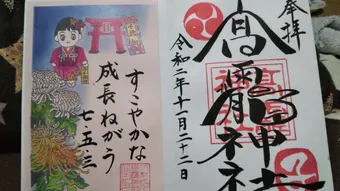 奉拝
髙神社
令和二年十一月二十二日
すこやかな
成長ねがう
七・五・三